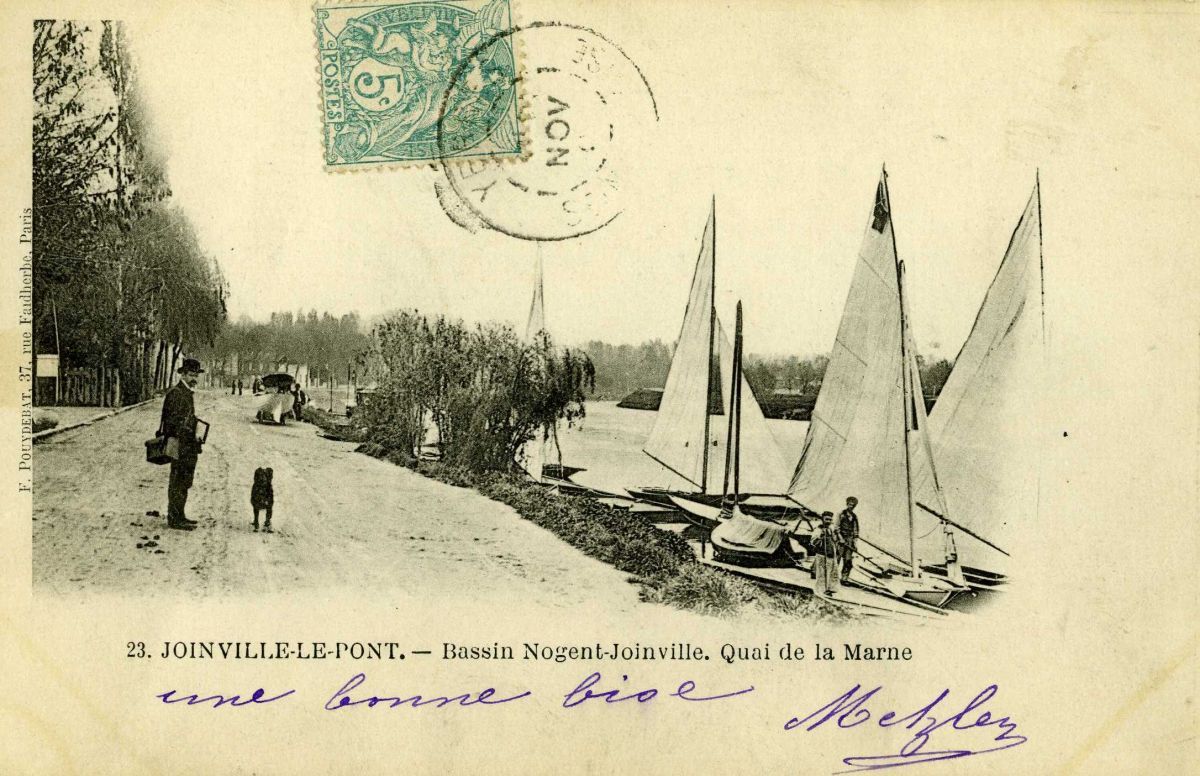 5c
POSTES
NOV
F. POUYDEBAT, 37, rue Faidherbe, Paris
23. JOINVILLE-LE-PONT. — Bassin Nogent-Joinville. Quai de la Marne
une bonne bise
Metzley